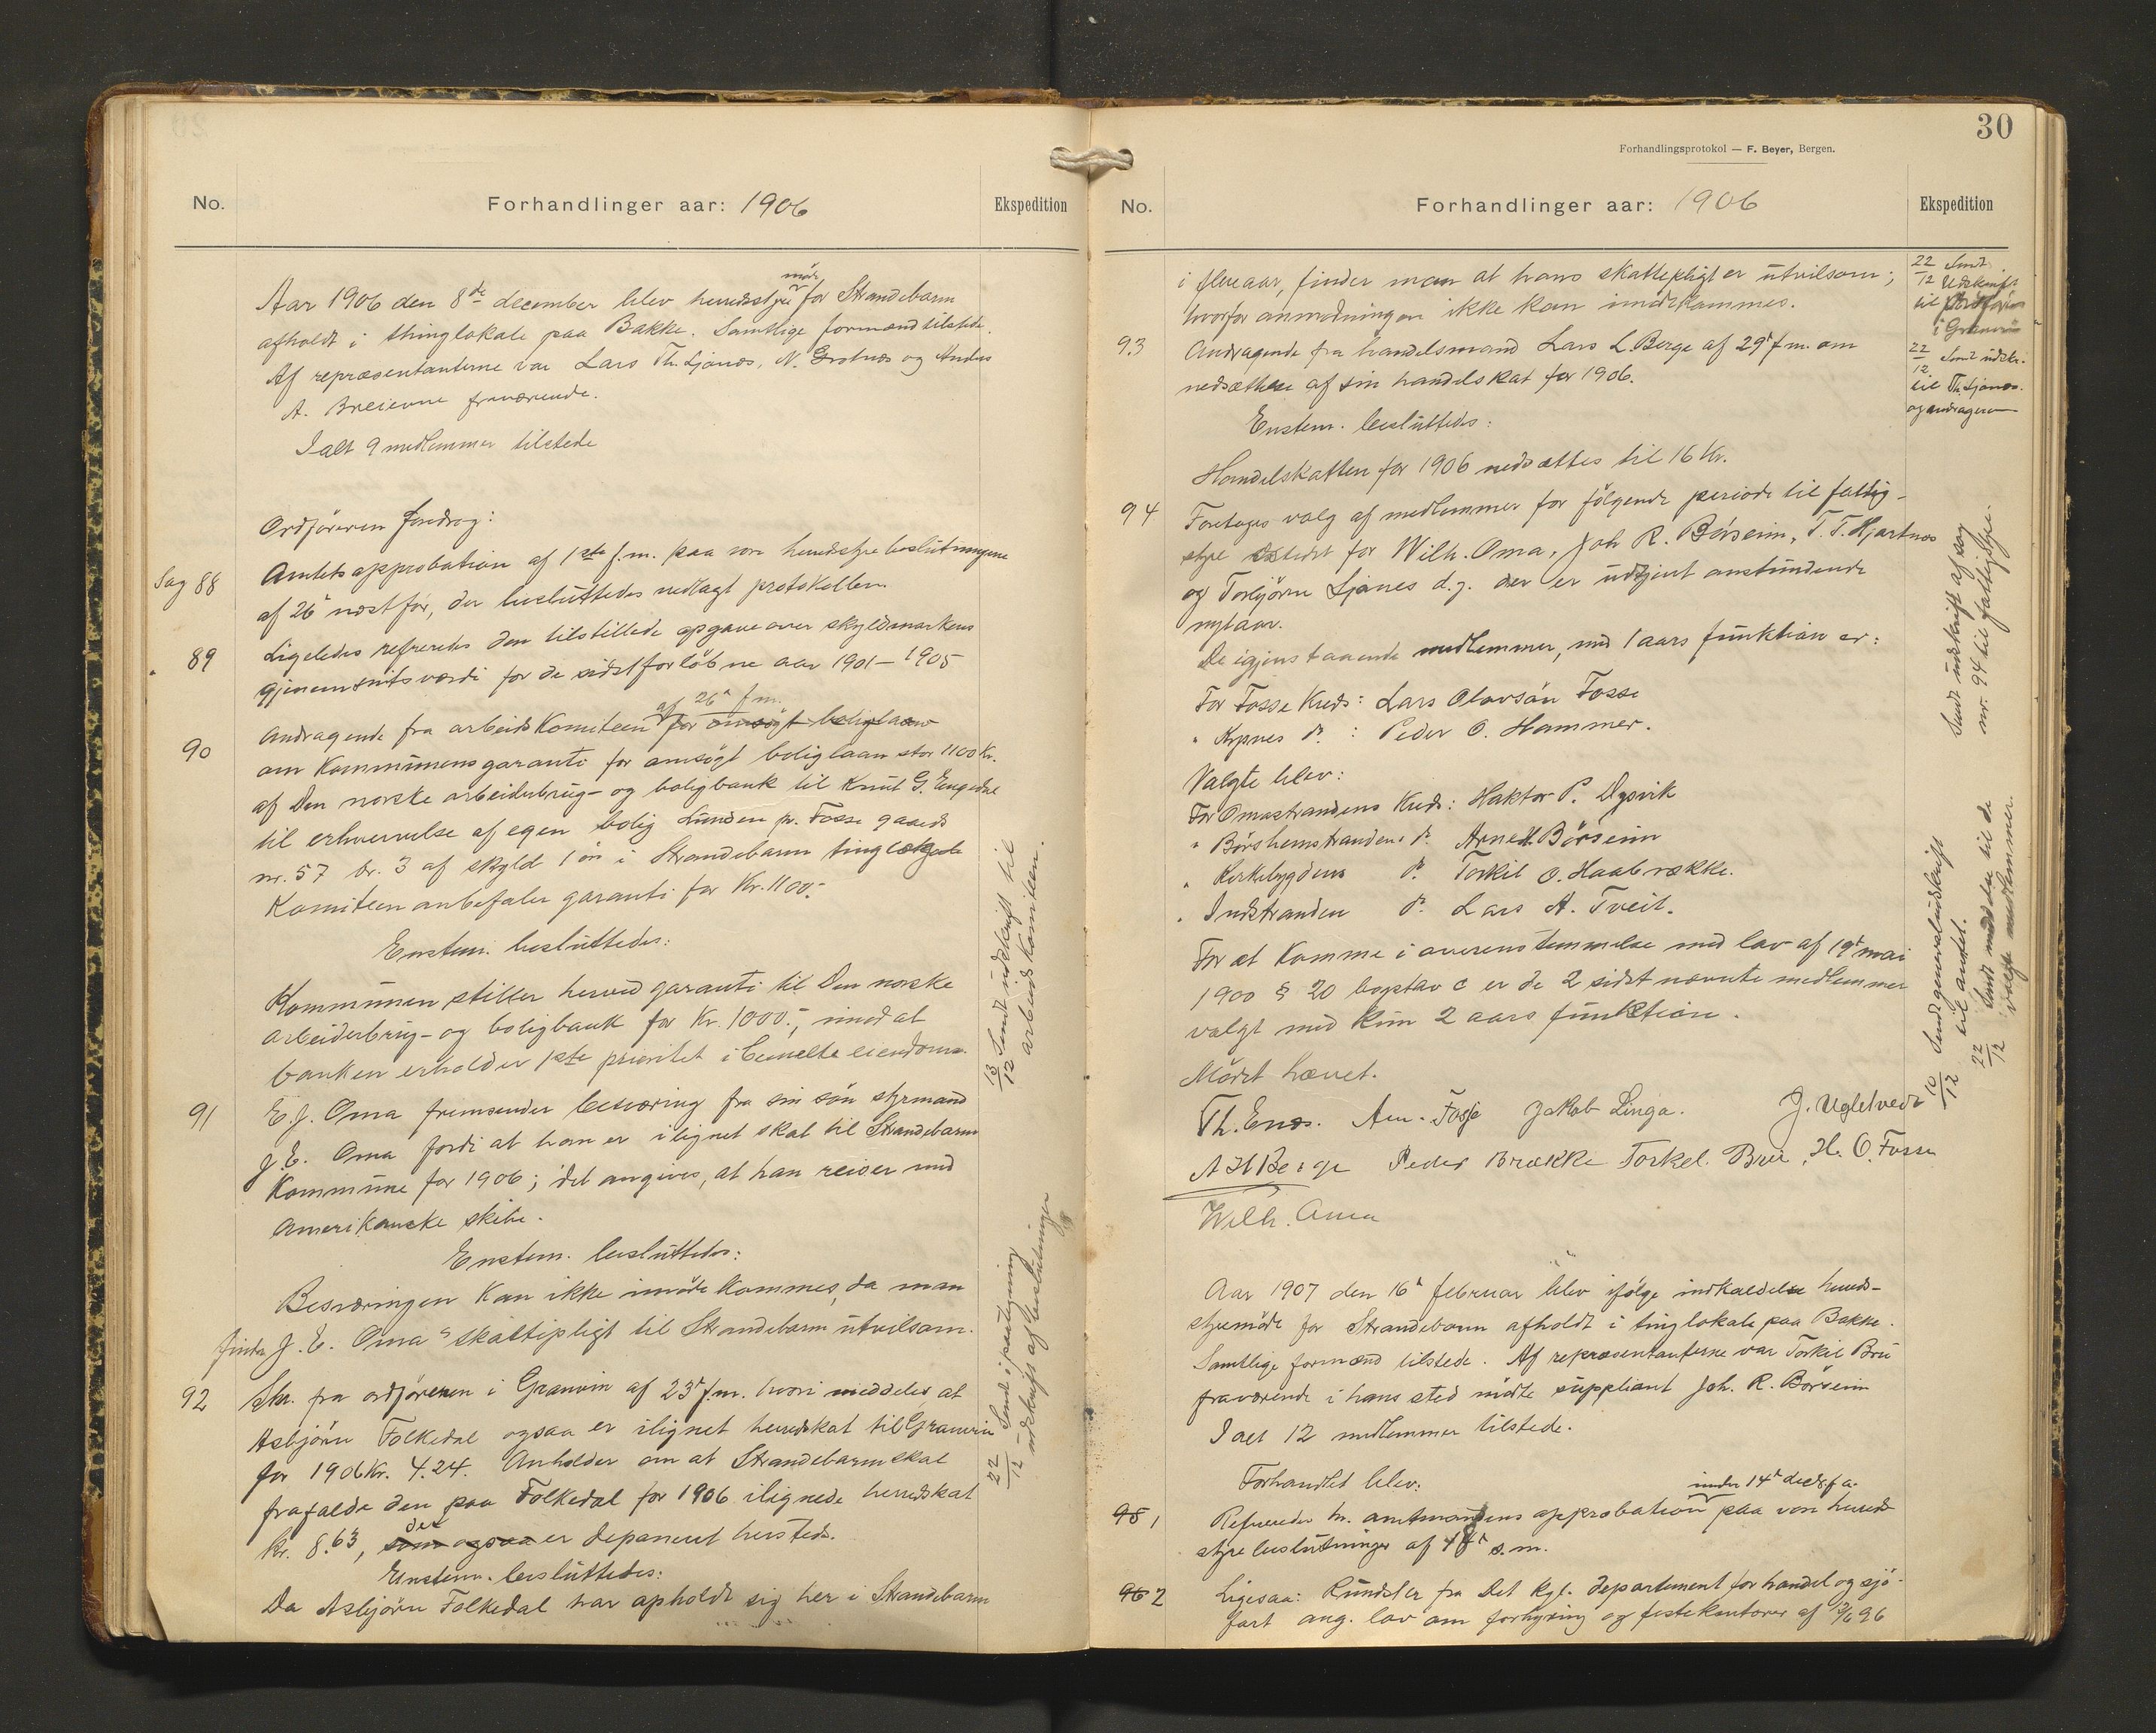 No.
Forhandlinger aar: 1906
Ekspedition
Aar 1906 den 8de december blev herredsstyremöde for Strandebarm
afholdt i thinglokale paa Bakke. Samtlige formænd tilstede.
Af repræsentanterne var Lars Th. Ljonæs, N. Grotnæs og Anders
A. Breievne fraværende.
I alt 9 medlemmer tilstede
Ordföreren foredrog:
Sag 88
Amtets approbation af 1ste f.m. paa vore herredsstyrebeslutningene
af 26' næst för, der besluttedes vedlagt protokollen.
89
Ligeledes refreredes den tilstillede opgave over skyldmarkens
gjenemsnitsværdi for de sidst forlöbne aar 1901–1905
90
Andragende fra arbeidskomiteen af 26' f.m. for ansögt boliglaan
om Kommunens garanti for ansögt boliglaan stor 1100 Kr.
af Den norske arbeiderbrug- og boligbank til Knut G. Engedal
til erhvervelse af egen bolig Lunden pr. Fosse gaards
nr. 57 br. 3 af skyld 1 öre i Strandebarm tinglag
Komiteen anbefaler garanti for Kr. 1100.-
Enstem. besluttedes:
Kommunen stiller herved garanti til Den norske
arbeiderbrug- og boligbank for Kr. 1000.-, imod at
banken erholder 1ste prioritet i bemelte eiendom.
13/12 Sendt udskrift til
arbeidskomiteen.
91
E. J. Oma fremsender besværing fra sin sön styrmand
J. E. Oma fordi at han er ilignet skat til Strandebarm
Kommune for 1906; det angives, at han reiser med
Amerikanske skibe.
Enstem. besluttedes:
Besværingen kan ikke imödekommes, da man
finder J. E. Oma's skattepligt til Strandebarm utvilsom.
92
Skr. fra ordföreren i Granvin af 23' f.m. hvori meddeles, at
Asbjörn Folkedal ogsaa er ilignet herredskat til Granvin
for 1906 Kr. 4.24. Anholder om at Strandebarm skal
frafalde den paa Folkedal for 1906 ilignede herredskat
Kr. 8.63, som ogsaa der er deponeret hersteds.
Enstem. besluttedes:
Da Asbjörn Folkedal har opholdt sig her i Strandebarm
22/12 Sendt i pantegning
udskrift af beslutningen
30
Forhandlingsprotokol — F. Beyer, Bergen.
No.
Forhandlinger aar: 1906
Ekspedition
i flere aar, finder man at hans skattepligt er utvilsom;
hvorfor anmodningen ikke kan imödekommes.
22/12 Sendt
Udskrift
til Ordförer
i Granvin
93
Andragende fra handelsmand Lars L. Berge af 29' f.m. om
nedsættelse af sin handelskat for 1906.
Enstem. besluttedes:
Handelskatten for 1906 nedsættes til 16 Kr.
22/12 Sendt udskr.
til Th. Ljonæs.
og andrageren
94
Foretages valg af medlemmer for fölgende periode til fattig-
styre istedet for Wilh. Oma, Joh. R. Börseim, T. T. Hjartnæs
og Torbjörn Ljones d.y. der er udtjent anstundende
nytaar.
De igjenstaaende medlemmer, med 1 aars funktion er:
For Fosse Kreds: Lars Olavsön Fosse
" Kypnes do. : Peder O. Hammer.
Valgte blev:
For Omastrandens Kreds: Haktor P. Dysvik
" Börshemstrandens do. Arne H. Börseim
" Kirkebygdens do. Torkil O. Haabrække.
" Indstranden do. Lars A. Tveit.
For at komme i overenstemmelse med lov af 19' mai
1900 § 20 bogstav c er de 2 sidst nævnte medlemmer
valgt med kun 2 aars funktion.
Mödet hævet.
Sendt udskrift af sag
nr. 94 til fattigstyre.
10/12 Sendt generaludskrift
til amtet.
22/12 Sendt meddel. til de
valgte medlemmer.
Th. Enæs. Am. Fosse Jakob Linga. J. Ugletvedt
A H Berge Peder Brække Torkel Brui, H. O. Fosse
Wilh. Oma
Aar 1907 den 16' februar blev ifölge indkaldelse herreds-
styremöde for Strandebarm afholdt i tinglokale paa Bakke.
Samtlige formænd tilstede. Af repræsentanterne var Torkil Brui
fraværende i hans sted mödte suppliant Joh. R. Börseim
I alt 12 medlemmer tilstede.
Forhandlet blev:
95 1
Refreredes hr. amtmandens approbation under 14' decbr f.a. paa vore herreds
styrebeslutninger af 8' s.m.
96 2
Ligesaa: Rundskr. fra Det kgl. departement for handel og sjö-
fart ang. lov om forhyring og festekontorer af